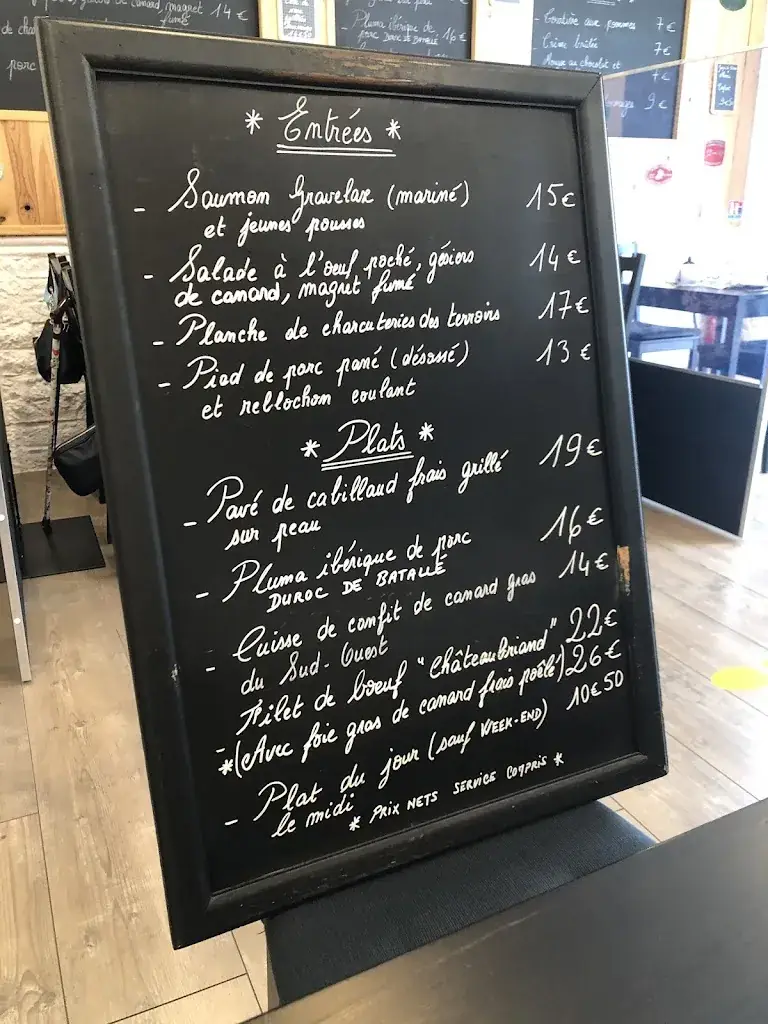 de canard, magret 14 €
fumé
de cha
porc
Pluma ibérique de
porc DUROC DE BATALLÉ 16 €
aux pommes 7 €
Crème brûlée 7 €
au chocolat et
7 €
9 €
* Entrées *
- Saumon Gravelax (mariné) 15€
et jeunes pousses
- Salade à l'oeuf poché, gésiers 14€
de canard, magret fumé
- Planche de charcuteries des terroirs 17€
- Pied de porc pané (désossé) 13€
et reblochon coulant
* Plats *
- Pavé de cabillaud frais grillé 19€
sur peau
- Pluma ibérique de porc 16€
DUROC DE BATALLÉ
- Cuisse de confit de canard gras 14€
du Sud-Ouest
- Filet de boeuf "Châteaubriand" 22€
*(Avec foie gras de canard frais poêlé) 26€
- Plat du jour (sauf WEEK-END) 10€50
le midi
* PRIX NETS SERVICE COMPRIS *